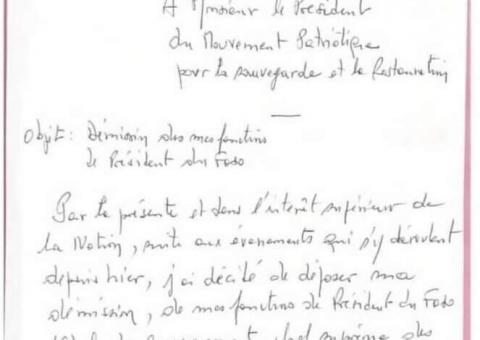 A Monsieur le Président
du Mouvement Patriotique
pour la sauvegarde et la Restauration
Objet: Démission des mes fonctions
de Président du Faso
Par la présente et dans l'intérêt supérieur de
la Nation, suite aux événements qui s'y déroulent
depuis hier, j'ai décidé de déposer ma
démission, de mes fonctions de Président du Faso
chef suprême des